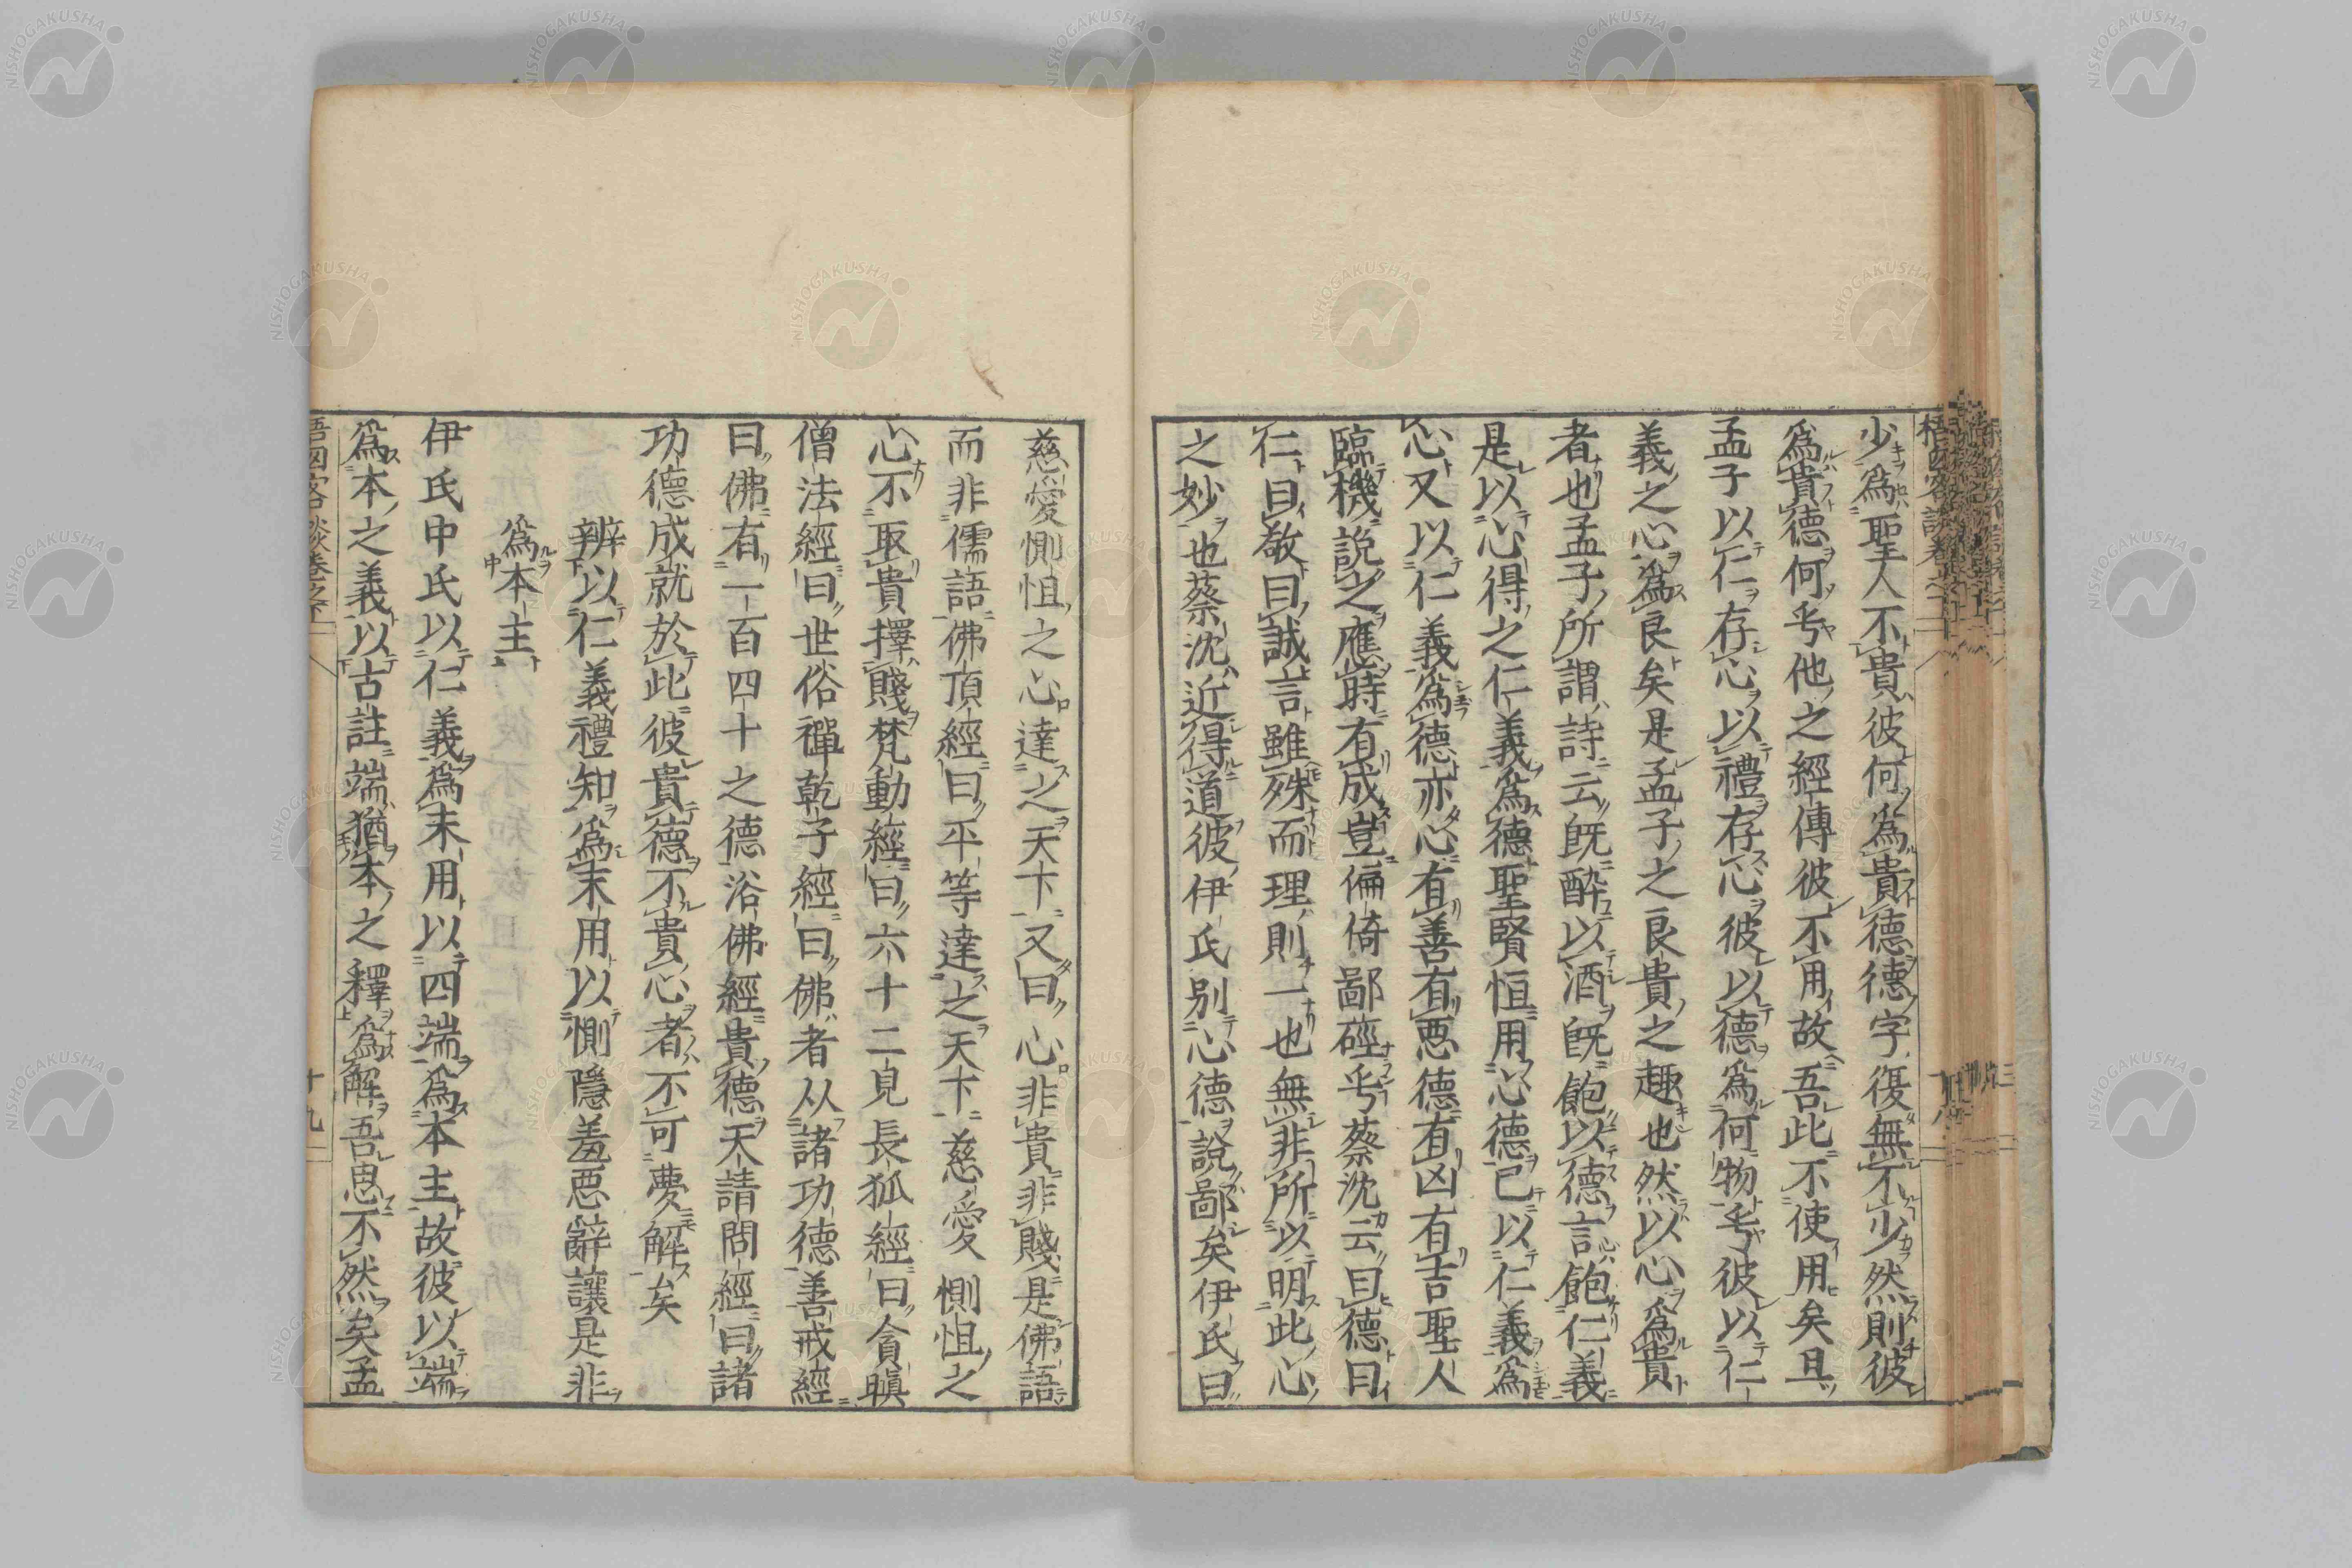 少爲聖人不貴彼何爲貴德德字復無不少然則彼
爲貴德何乎他之經傳彼不用故吾此不使用矣且
孟子以仁存心以禮存心彼以德爲何物乎彼以仁
義之心爲良矣是孟子之良貴之趣也然以心爲貴
者也孟子所謂詩云既醉以酒既飽以德言飽仁義
是以心得之仁義爲德聖賢恒用心德已以仁義爲
心又以仁義爲德亦心有善有惡德有凶有吉聖人
臨機說之應時有成豈偏倚鄙硜乎蔡沈云曰德曰
仁曰敬曰誠言雖殊而理則一也無非所以明此心
之妙也蔡沈近得道彼伊氏別心德說鄙矣伊氏曰
慈愛惻怛之心達之天下又曰心非貴非賤是佛語
而非儒語佛頂經曰平等達之天下慈愛惻怛之
心不取貴擇賤梵動經曰六十二見長狐經曰貪瞋
僧法經曰世俗禪乾子經曰佛者从諸功德善戒經
曰佛有一百四十之德浴佛經貴德天請問經曰諸
功德成就於此彼貴德不貴心者不可夢解矣
辨以仁義禮知爲末用以惻隱羞惡辭讓是非
爲本主
伊氏中氏以仁義爲末用以四端爲本主故彼以端
爲本之義以古註端猶本之釋爲解吾思不然矣孟
梧囱客談卷之下
十九
NISHOGAKUSHA